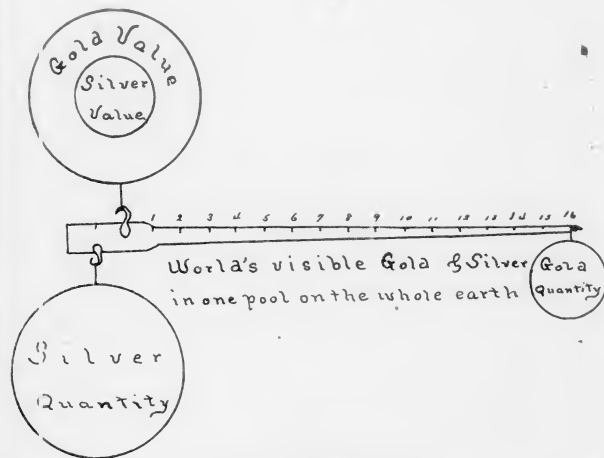 Gold Value
Silver
Value
1 2 3 4 5 6 7 8 9 10 11 12 13 14 15 16
World's visible Gold & Silver
in one pool on the whole earth
Gold
Quantity
Silver
Quantity